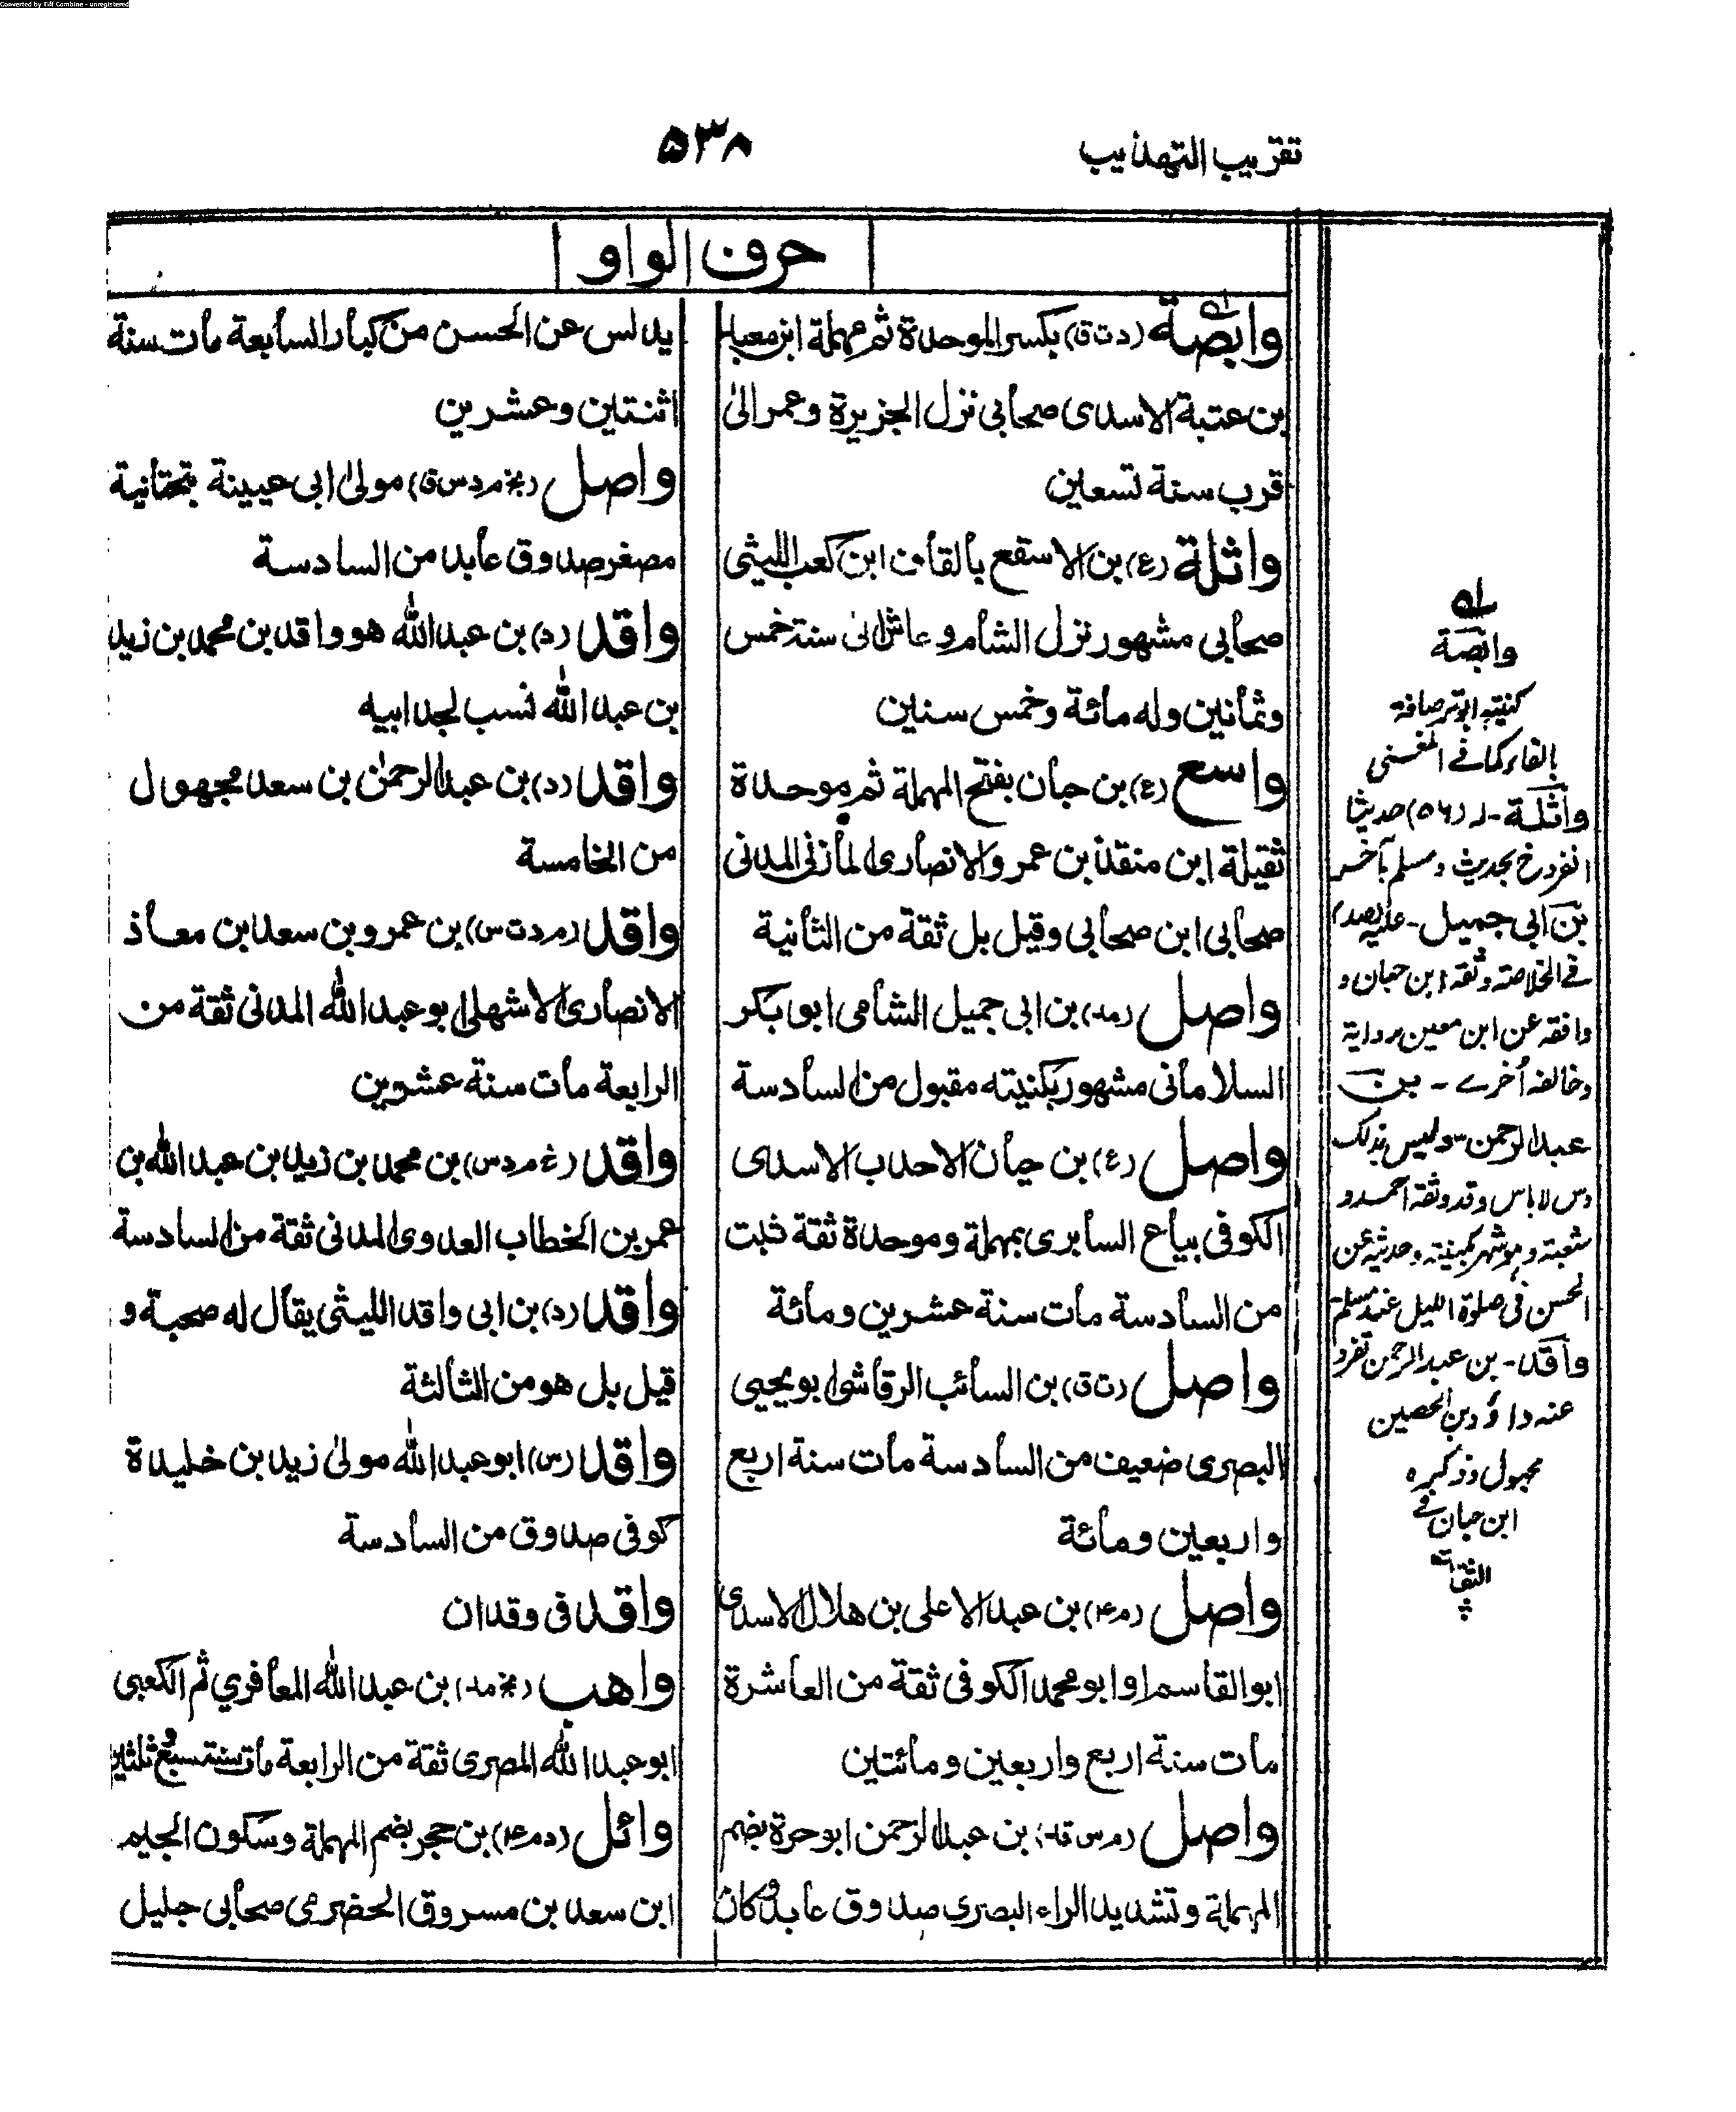 Converted by Tiff Combine - unregistered
تقريب التهذيب
۵۳۸
حرف الواو
وابصة (د ت ق) بكسر الموحدة ثم مهملة ابن معبد
بن عتبة الاسدى صحابى نزل الجزيرة وعمر الىٰ
قرب سنة تسعين
واثلة (ع) بن الاسقع بالقاف ابن كعب الليثى
صحابى مشهور نزل الشام وعاش الى سنة خمس
وثمانين وله مائة وخمس سنين
واسع (ع) بن حبان بفتح المهملة ثم موحدة
ثقيلة ابن منقذ بن عمرو الانصارى المازنى المدنى
صحابى ابن صحابى وقيل بل ثقة من الثانية
واصل (مد) بن ابى جميل الشامى ابو بكر
السلامانى مشهور بكنيته مقبول من السادسة
واصل (ع) بن حيان الاحدب الاسدى
الكوفى بياع السابرى بمهملة وموحدة ثقة ثبت
من السادسة مات سنة عشرين ومائة
واصل (ت ق) بن السائب الرقاشى ابو يحيى
البصرى ضعيف من السادسة مات سنة اربع
واربعين ومائة
واصل (م ۴) بن عبد الاعلى بن هلال الاسدى
ابو القاسم او ابو محمد الكوفى ثقة من العاشرة
مات سنة اربع واربعين ومائتين
واصل (م س قد) بن عبد الرحمن ابو حرة بضم
المهملة وتشديد الراء البصرى صدوق عابد وكان
يدلس عن الحسن من كبار السابعة مات سنة
اثنتين وعشرين
واصل (بخ م د س ق) مولىٰ ابى عيينة بتحتانية
مصغر صدوق عابد من السادسة
واقد (د) بن عبد الله هو واقد بن محمد بن زيد
بن عبد الله نسب لجد ابيه
واقد (د) بن عبد الرحمٰن بن سعد مجهول
من الخامسة
واقد (م د ت س) بن عمرو بن سعد ابن معاذ
الانصارى الاشهلى ابو عبد الله المدنى ثقة من
الرابعة مات سنة عشرين
واقد (خ م د س) بن محمد بن زيد بن عبد الله بن
عمر بن الخطاب العدوى المدنى ثقة من السادسة
واقد (د) بن ابى واقد الليثى يقال له صحبة و
قيل بل هو من الثالثة
واقد (س) ابو عبد الله مولىٰ زيد بن خليدة
كوفى صدوق من السادسة
واقد فى وقدان
واهب (بخ مد) بن عبد الله المعافري ثم الكعبى
ابو عبد الله المصرى ثقة من الرابعة مات سنة سبع وثلثين
وائل (د م ۴) بن حجر بضم المهملة وسكون الجيم
ابن سعد بن مسروق الحضرمى صحابى جليل
له
وابصة
كنيته ابو قرصافه
بالفاء كما فے المغنى
واثلة - لہ (۵۶) حديثا
انفرد خ بحديث ومسلم بآخر
بن ابى جميل -
فے الخلاصة وثقه ابن حبان و
وافقه عن ابن معين برواية
وخالفه اُخرے - بن
عبد الرحمن - وليس بذلك
دس لاباس وقد وثقه احمد و
شعبة وهو شهر بكنيته وحديثه عن
الحسن فى صلوة الليل عند مسلم
واقد - بن عبد الرحمن تفرد
عنه داؤد بن الحصين
مجهول وذكره
ابن حبان فے
الثقات